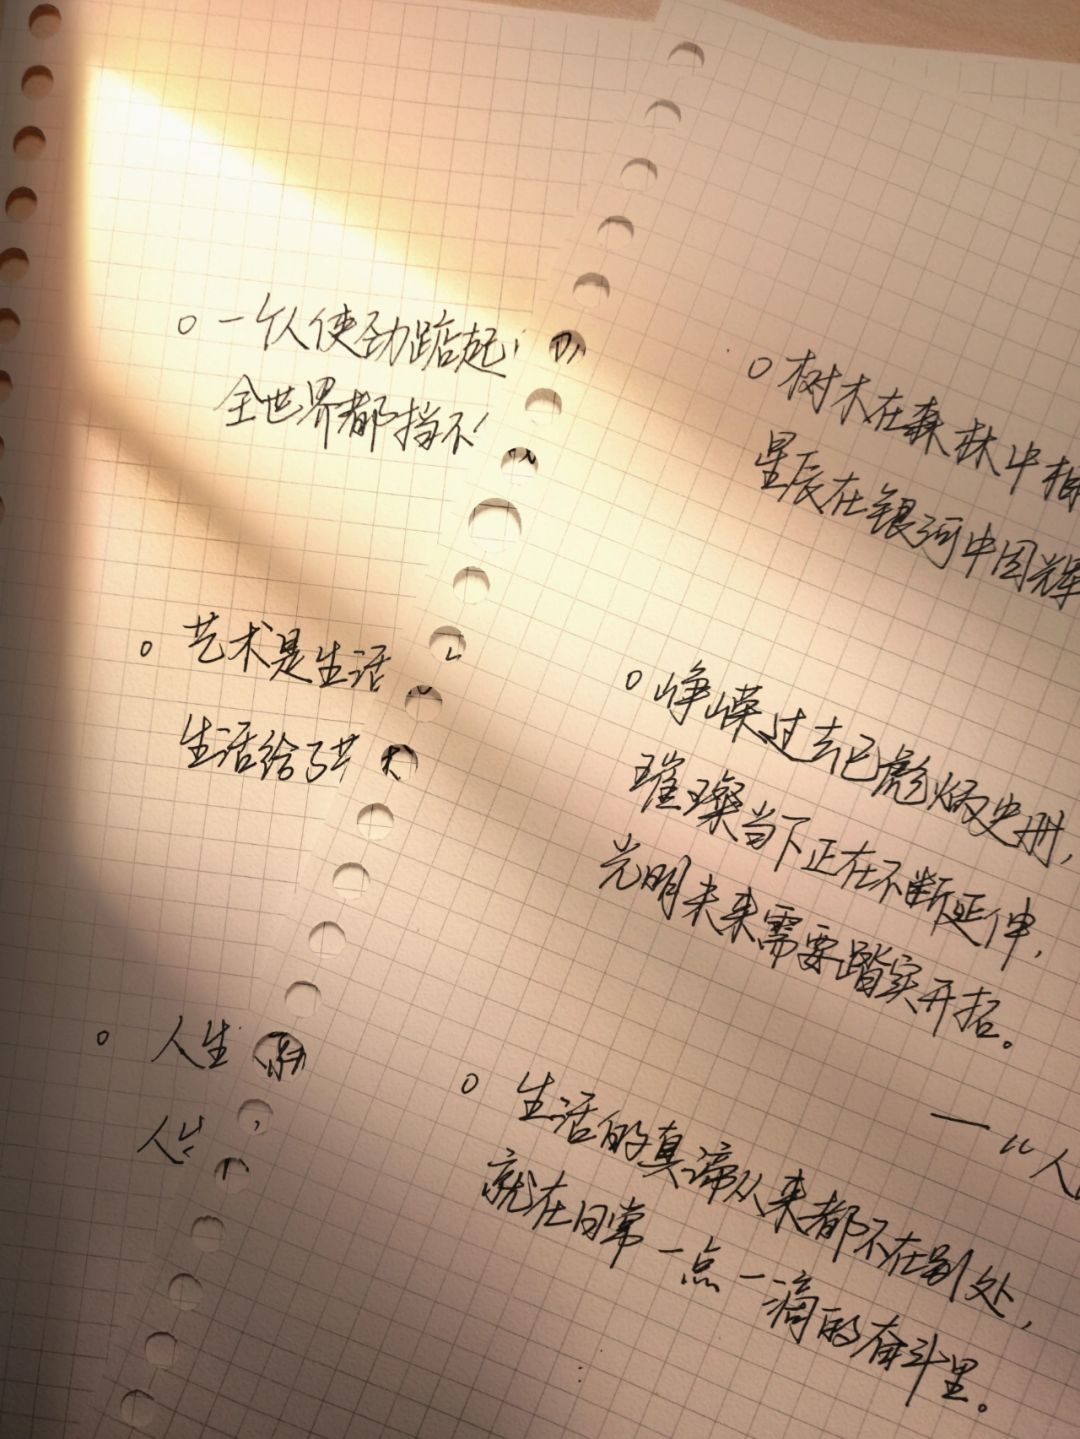 一个人使劲踮起
全世界都挡不
艺术是生活
生活给了艺
人生
人生
树木在森林中相
星辰在银河中闪辉
峥嵘过去已彪炳史册,
璀璨当下正在不断延伸,
光明未来需要踏实开拓。
—"人民
生活的真谛从来都不在别处,
就在日常一点一滴的奋斗里。